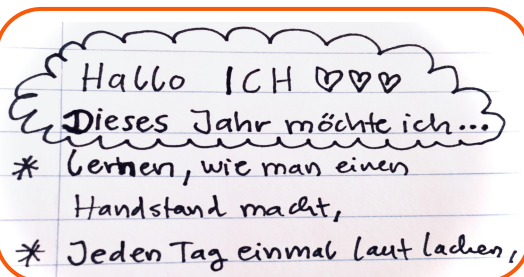 Hallo ICH ♡♡♡
Dieses Jahr möchte ich...
* lernen, wie man einen
Handstand macht,
* Jeden Tag einmal laut lachen,